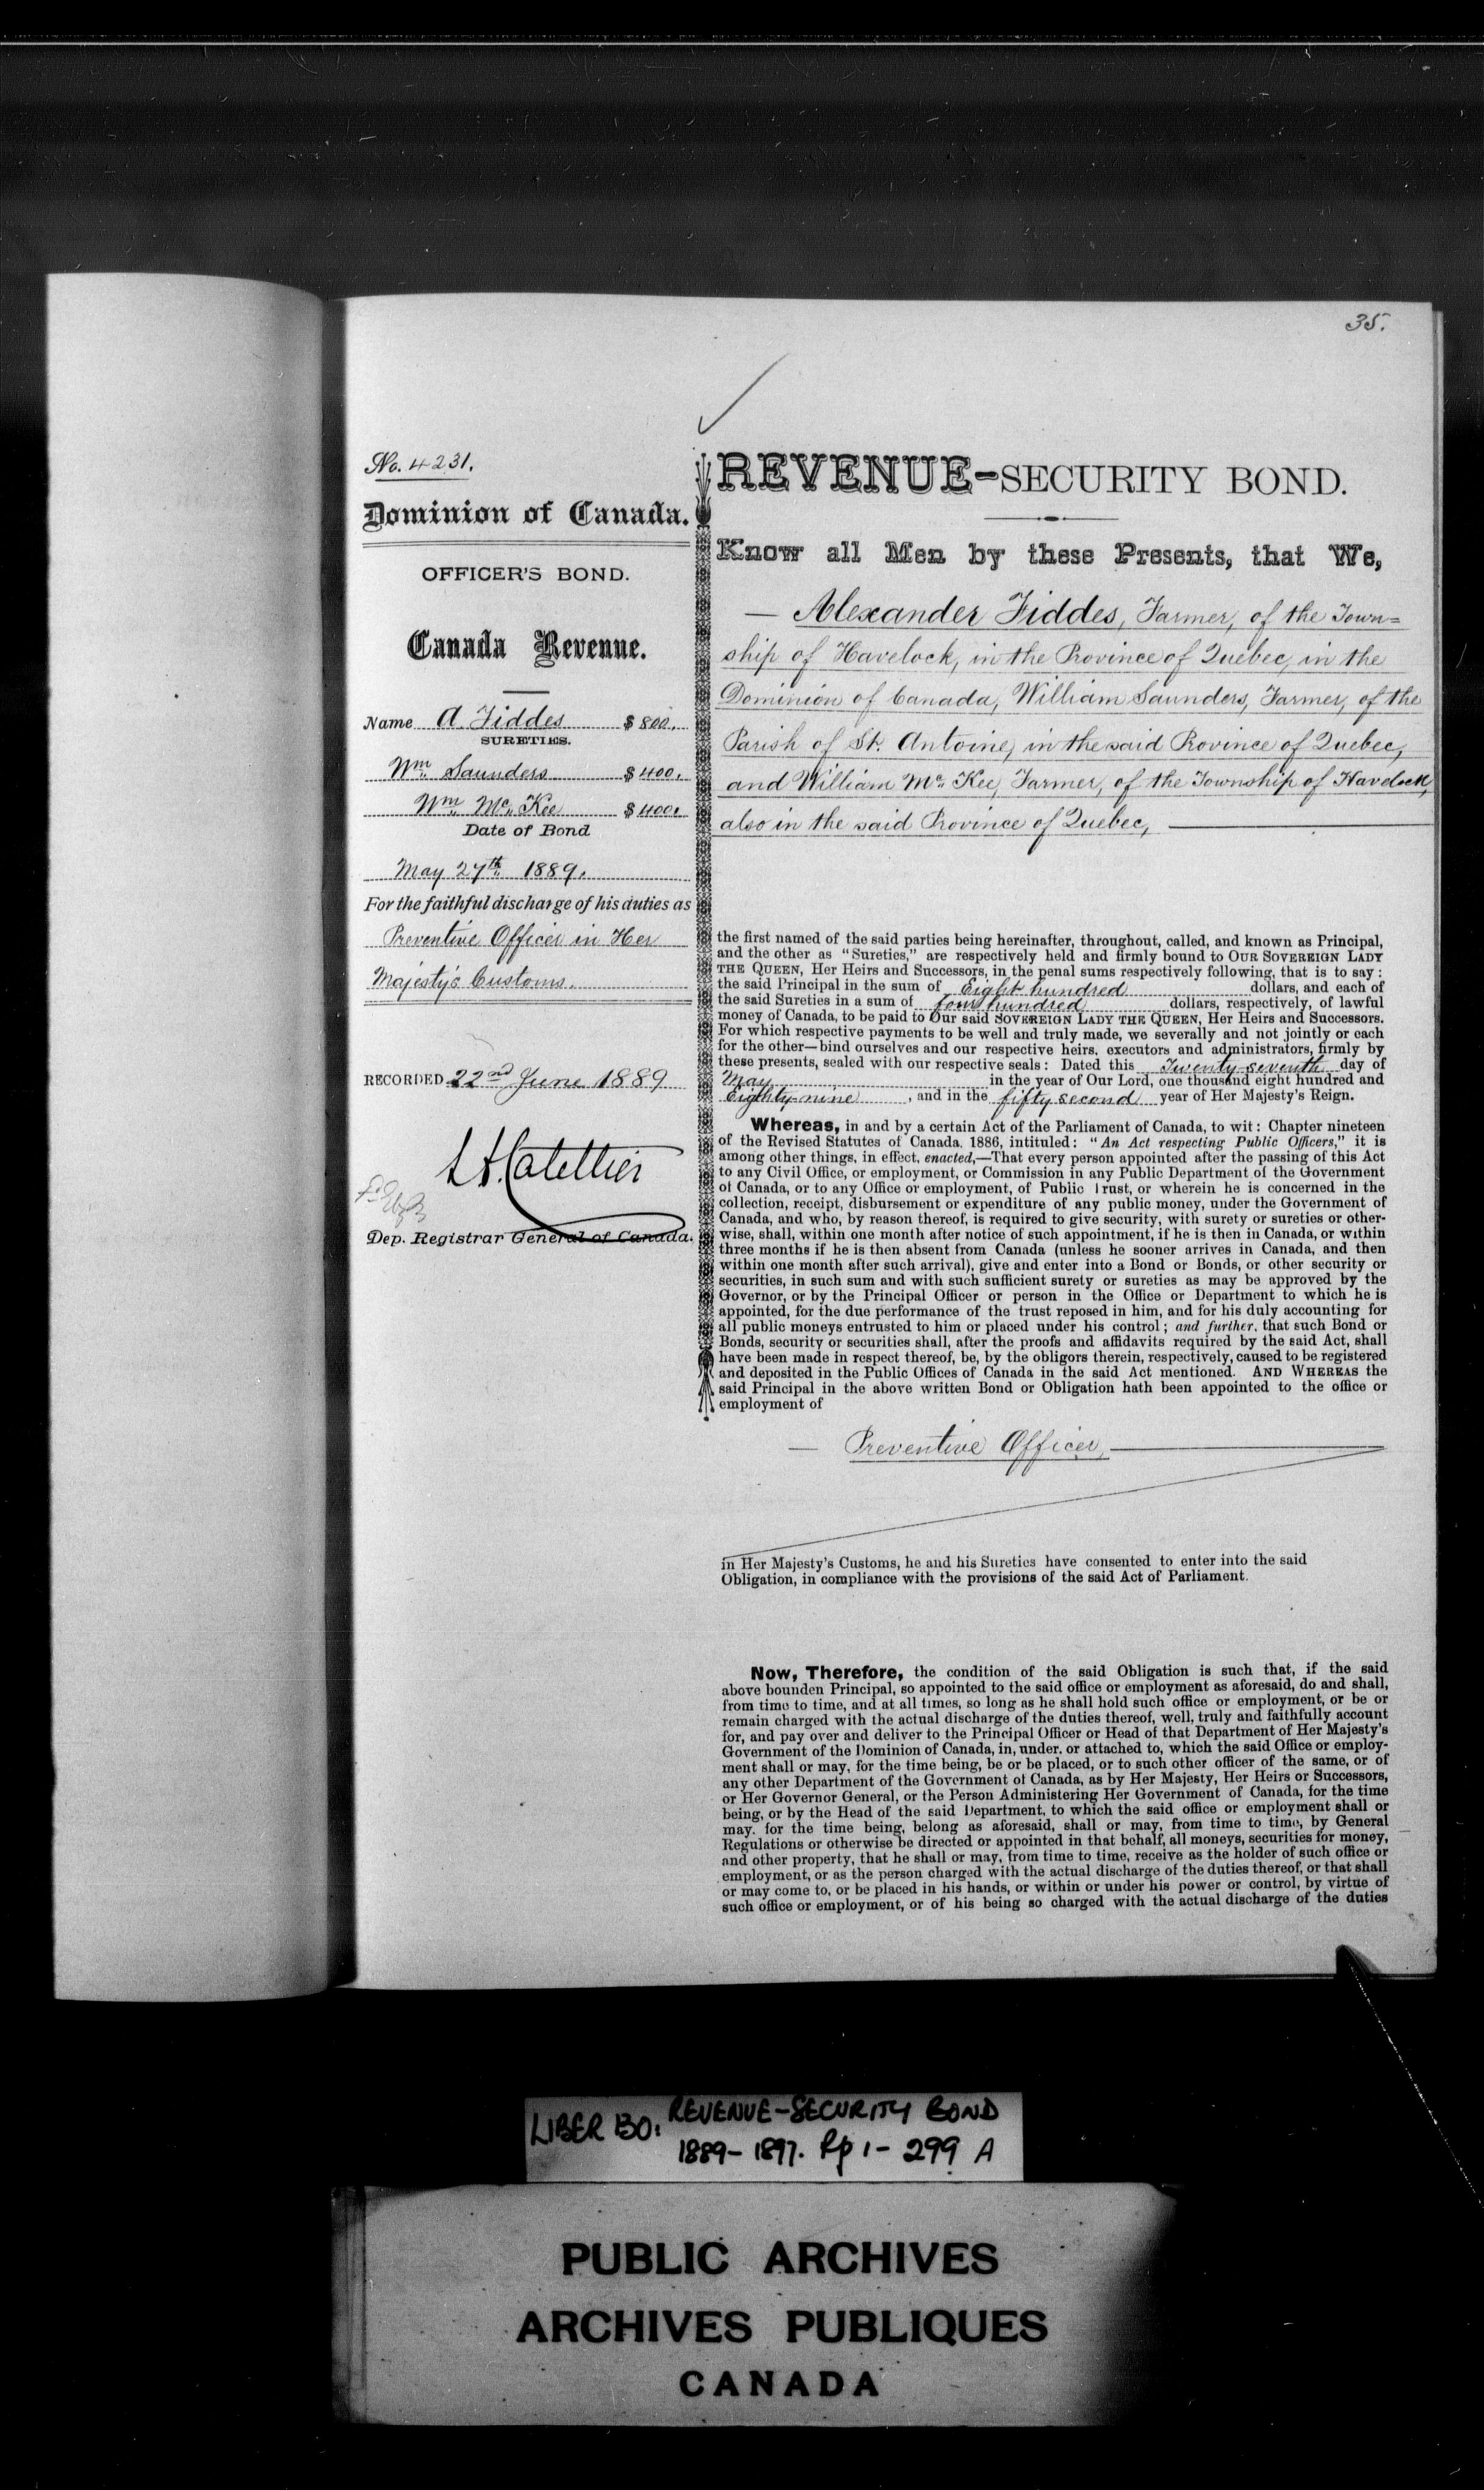 35.
No. 4231.
Dominion of Canada.
OFFICER'S BOND.
Canada Revenue.
Name A. Fiddes $800.
SURETIES.
Wm. Saunders $400.
Wm. Mc. Kee $400.
Date of Bond
May 27th. 1889.
For the faithful discharge of his duties as
Preventive Officer in Her
Majesty's Customs.
RECORDED 22nd June 1889
Dep. Registrar General of Canada.
REVENUE-SECURITY BOND.
Know all Men by these Presents, that We,
— Alexander Fiddes, Farmer, of the Town=
ship of Havelock, in the Province of Quebec, in the
Dominion of Canada, William Saunders, Farmer, of the
Parish of St. Antoine, in the said Province of Quebec,
and William Mc. Kee, Farmer, of the Township of Havelock,
also in the said Province of Quebec,
the first named of the said parties being hereinafter, throughout, called, and known as Principal,
and the other as "Sureties," are respectively held and firmly bound to OUR SOVEREIGN LADY
THE QUEEN, Her Heirs and Successors, in the penal sums respectively following, that is to say:
the said Principal in the sum of Eight hundred dollars, and each of
the said Sureties in a sum of four hundred dollars, respectively, of lawful
money of Canada, to be paid to Our said SOVEREIGN LADY THE QUEEN, Her Heirs and Successors.
For which respective payments to be well and truly made, we severally and not jointly or each
for the other—bind ourselves and our respective heirs, executors and administrators, firmly by
these presents, sealed with our respective seals: Dated this Twenty-seventh day of
May in the year of Our Lord, one thousand eight hundred and
Eighty-nine, and in the fifty second year of Her Majesty's Reign.
Whereas, in and by a certain Act of the Parliament of Canada, to wit: Chapter nineteen
of the Revised Statutes of Canada, 1886, intituled: "An Act respecting Public Officers," it is
among other things, in effect, enacted,—That every person appointed after the passing of this Act
to any Civil Office, or employment, or Commission in any Public Department of the Government
of Canada, or to any Office or employment, of Public Trust, or wherein he is concerned in the
collection, receipt, disbursement or expenditure of any public money, under the Government of
Canada, and who, by reason thereof, is required to give security, with surety or sureties or other-
wise, shall, within one month after notice of such appointment, if he is then in Canada, or within
three months if he is then absent from Canada (unless he sooner arrives in Canada, and then
within one month after such arrival), give and enter into a Bond or Bonds, or other security or
securities, in such sum and with such sufficient surety or sureties as may be approved by the
Governor, or by the Principal Officer or person in the Office or Department to which he is
appointed, for the due performance of the trust reposed in him, and for his duly accounting for
all public moneys entrusted to him or placed under his control; and further, that such Bond or
Bonds, security or securities shall, after the proofs and affidavits required by the said Act, shall
have been made in respect thereof, be, by the obligors therein, respectively, caused to be registered
and deposited in the Public Offices of Canada in the said Act mentioned. AND WHEREAS the
said Principal in the above written Bond or Obligation hath been appointed to the office or
employment of
— Preventive Officer,
in Her Majesty's Customs, he and his Sureties have consented to enter into the said
Obligation, in compliance with the provisions of the said Act of Parliament.
Now, Therefore, the condition of the said Obligation is such that, if the said
above bounden Principal, so appointed to the said office or employment as aforesaid, do and shall,
from time to time, and at all times, so long as he shall hold such office or employment, or be or
remain charged with the actual discharge of the duties thereof, well, truly and faithfully account
for, and pay over and deliver to the Principal Officer or Head of that Department of Her Majesty's
Government of the Dominion of Canada, in, under, or attached to, which the said Office or employ-
ment shall or may, for the time being, be or be placed, or to such other officer of the same, or of
any other Department of the Government of Canada, as by Her Majesty, Her Heirs or Successors,
or Her Governor General, or the Person Administering Her Government of Canada, for the time
being, or by the Head of the said Department, to which the said office or employment shall or
may, for the time being, belong as aforesaid, shall or may, from time to time, by General
Regulations or otherwise be directed or appointed in that behalf, all moneys, securities for money,
and other property, that he shall or may, from time to time, receive as the holder of such office or
employment, or as the person charged with the actual discharge of the duties thereof, or that shall
or may come to, or be placed in his hands, or within or under his power or control, by virtue of
such office or employment, or of his being so charged with the actual discharge of the duties
LIBER 130: REVENUE-SECURITY BOND
1889-1897. Pp 1-299 A
PUBLIC ARCHIVES
ARCHIVES PUBLIQUES
CANADA